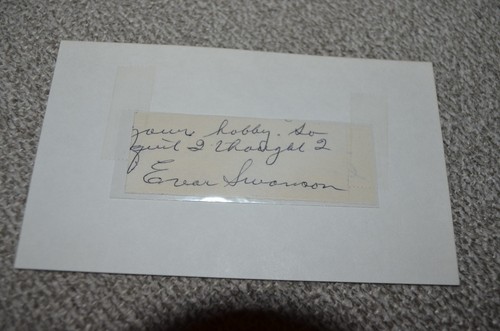 your hobby. So
quit I thought I
Evar Swanson